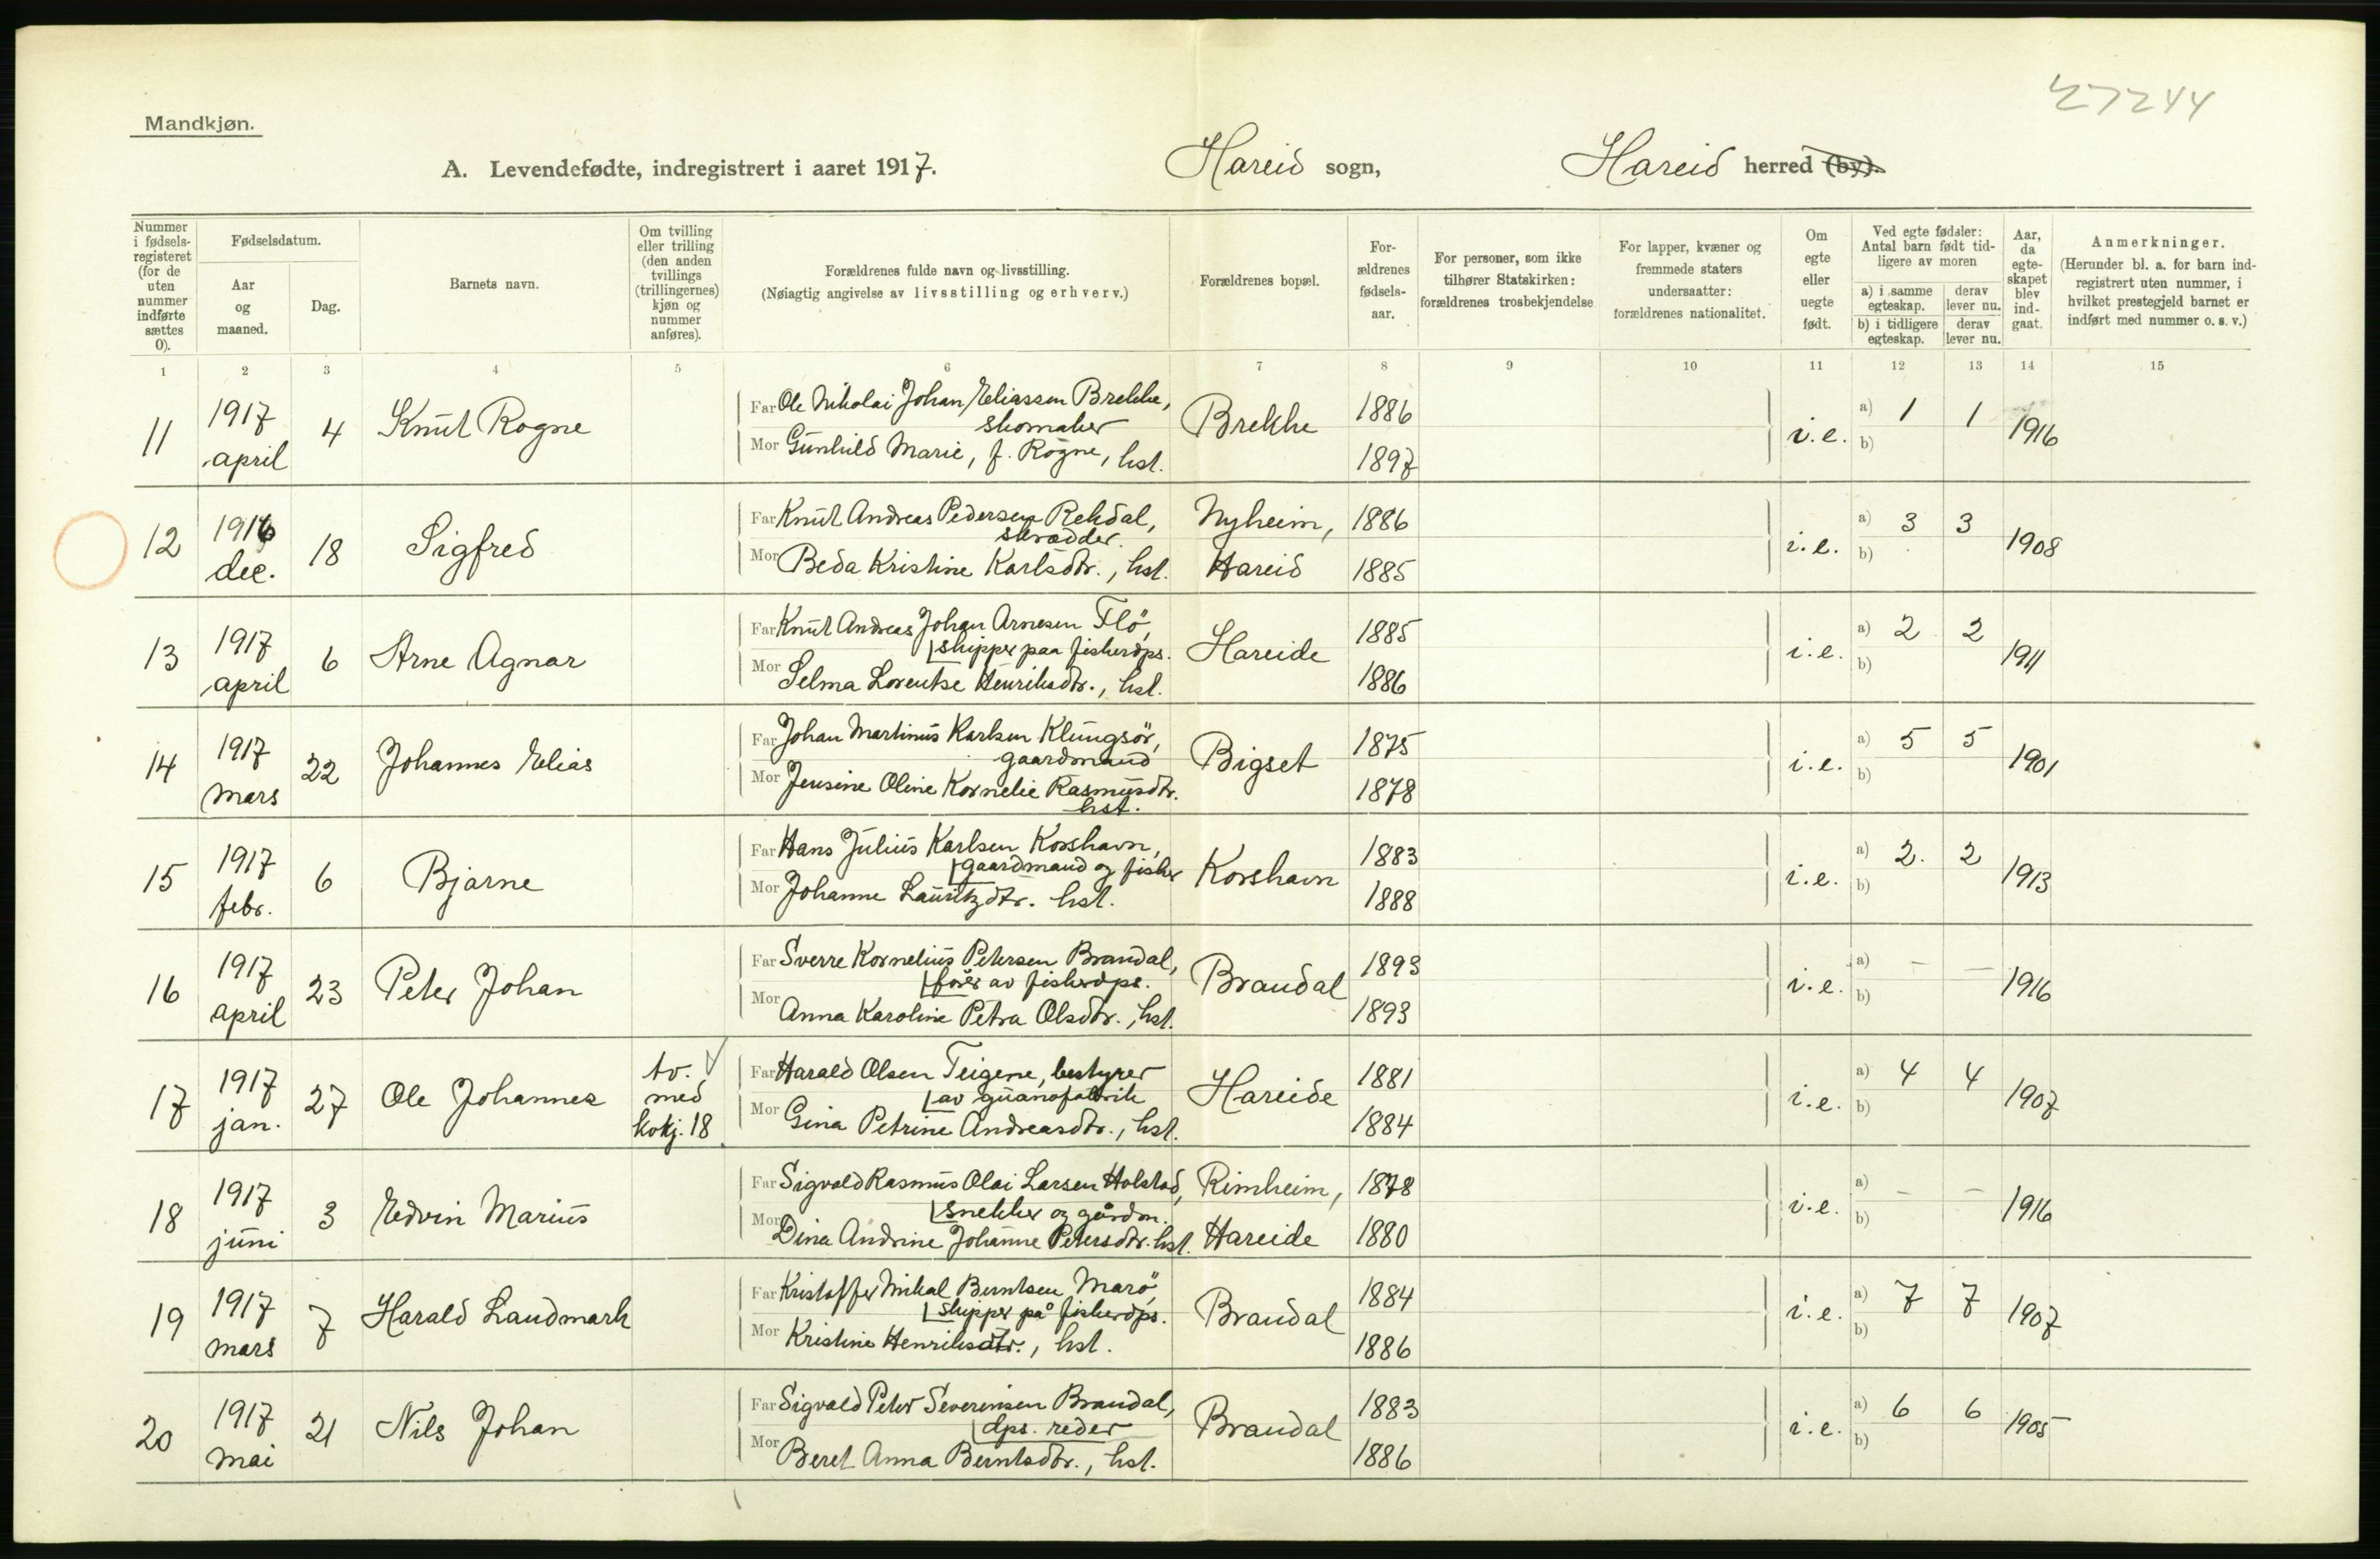 27244
Mandkjøn.
A. Levendefødte, indregistrert i aaret 1917. Hareid sogn, Hareid herred (by).
Nummer i fødselsregisteret (for de uten nummer indførte sættes 0).
Fødselsdatum.
Aar og maaned.
Dag.
Barnets navn.
Om tvilling eller trilling (den anden tvillings (trillingernes) kjøn og nummer anføres).
Forældrenes fulde navn og livsstilling.
(Nøiagtig angivelse av livsstilling og erhverv.)
Forældrenes bopæl.
Forældrenes fødselsaar.
For personer, som ikke tilhører Statskirken: forældrenes trosbekjendelse
For lapper, kvæner og fremmede staters undersaatter: forældrenes nationalitet.
Om egte eller uegte født.
Ved egte fødsler: Antal barn født tidligere av moren
a) i samme egteskap. derav lever nu.
b) i tidligere egteskap. derav lever nu.
Aar, da egteskapet blev indgaat.
Anmerkninger.
(Herunder bl. a. for barn indregistrert uten nummer, i hvilket prestegjeld barnet er indført med nummer o. s. v.)
1 2 3 4 5 6 7 8 9 10 11 12 13 14 15
11 1917 april 4 Knut Rogne
Far Ole Nikolai Johan Eliassen Brekke, skomaker
Mor Gunhild Marie, f. Rogne, hst.
Brekke 1886 1897 i.e. a) 1 1 b) 1916
12 1916 dec. 18 Sigfred
Far Knut Andreas Pedersen Rekdal, skrædder.
Mor Beda Kristine Karlsdtr., hst.
Nyheim, Hareid 1886 1885 i.e. a) 3 3 b) 1908
13 1917 april 6 Arne Agnar
Far Knut Andreas Johan Arnesen Flö, skipper paa fiskerdps.
Mor Selma Lorentse Henriksdtr., hst.
Hareide 1885 1886 i.e. a) 2 2 b) 1911
14 1917 mars 22 Johannes Elias
Far Johan Martinus Karlsen Klungsör, gaardmand
Mor Jensine Oline Kornelie Rasmusdtr. hst.
Bigset 1875 1878 i.e. a) 5 5 b) 1901
15 1917 febr. 6 Bjarne
Far Hans Julius Karlsen Korshavn, gaardmand og fisker
Mor Johanne Lauritzdtr. hst.
Korshavn 1883 1888 i.e. a) 2. 2 b) 1913
16 1917 april 23 Peter Johan
Far Sverre Kornelius Petersen Brandal, förer av fiskerdps.
Mor Anna Karoline Petra Olsdtr., hst.
Brandal 1893 1893 i.e. a) — — b) 1916
17 1917 jan. 27 Ole Johannes tv. med kvkj. 18
Far Harald Olsen Teigene, bestyrer av guanofabrik
Mor Gina Petrine Andreasdtr., hst.
Hareide 1881 1884 i.e. a) 4 4 b) 1907
18 1917 juni 3 Edvin Marius
Far Sigvald Rasmus Olai Larsen Holstad, snekker og gårdm.
Mor Dina Andrine Johanne Petersdtr. hst.
Rimheim, Hareide 1878 1880 i.e. a) — — b) 1916
19 1917 mars 7 Harald Landmark
Far Kristoffer Mikal Berntsen Marö, skipper på fiskerdps.
Mor Kristine Henriksdtr., hst.
Brandal 1884 1886 i.e. a) 7 7 b) 1907
20 1917 mai 21 Nils Johan
Far Sigvald Peter Severinsen Brandal, dps. reder
Mor Beret Anna Berntsdtr., hst.
Brandal 1883 1886 i.e. a) 6 6 b) 1905